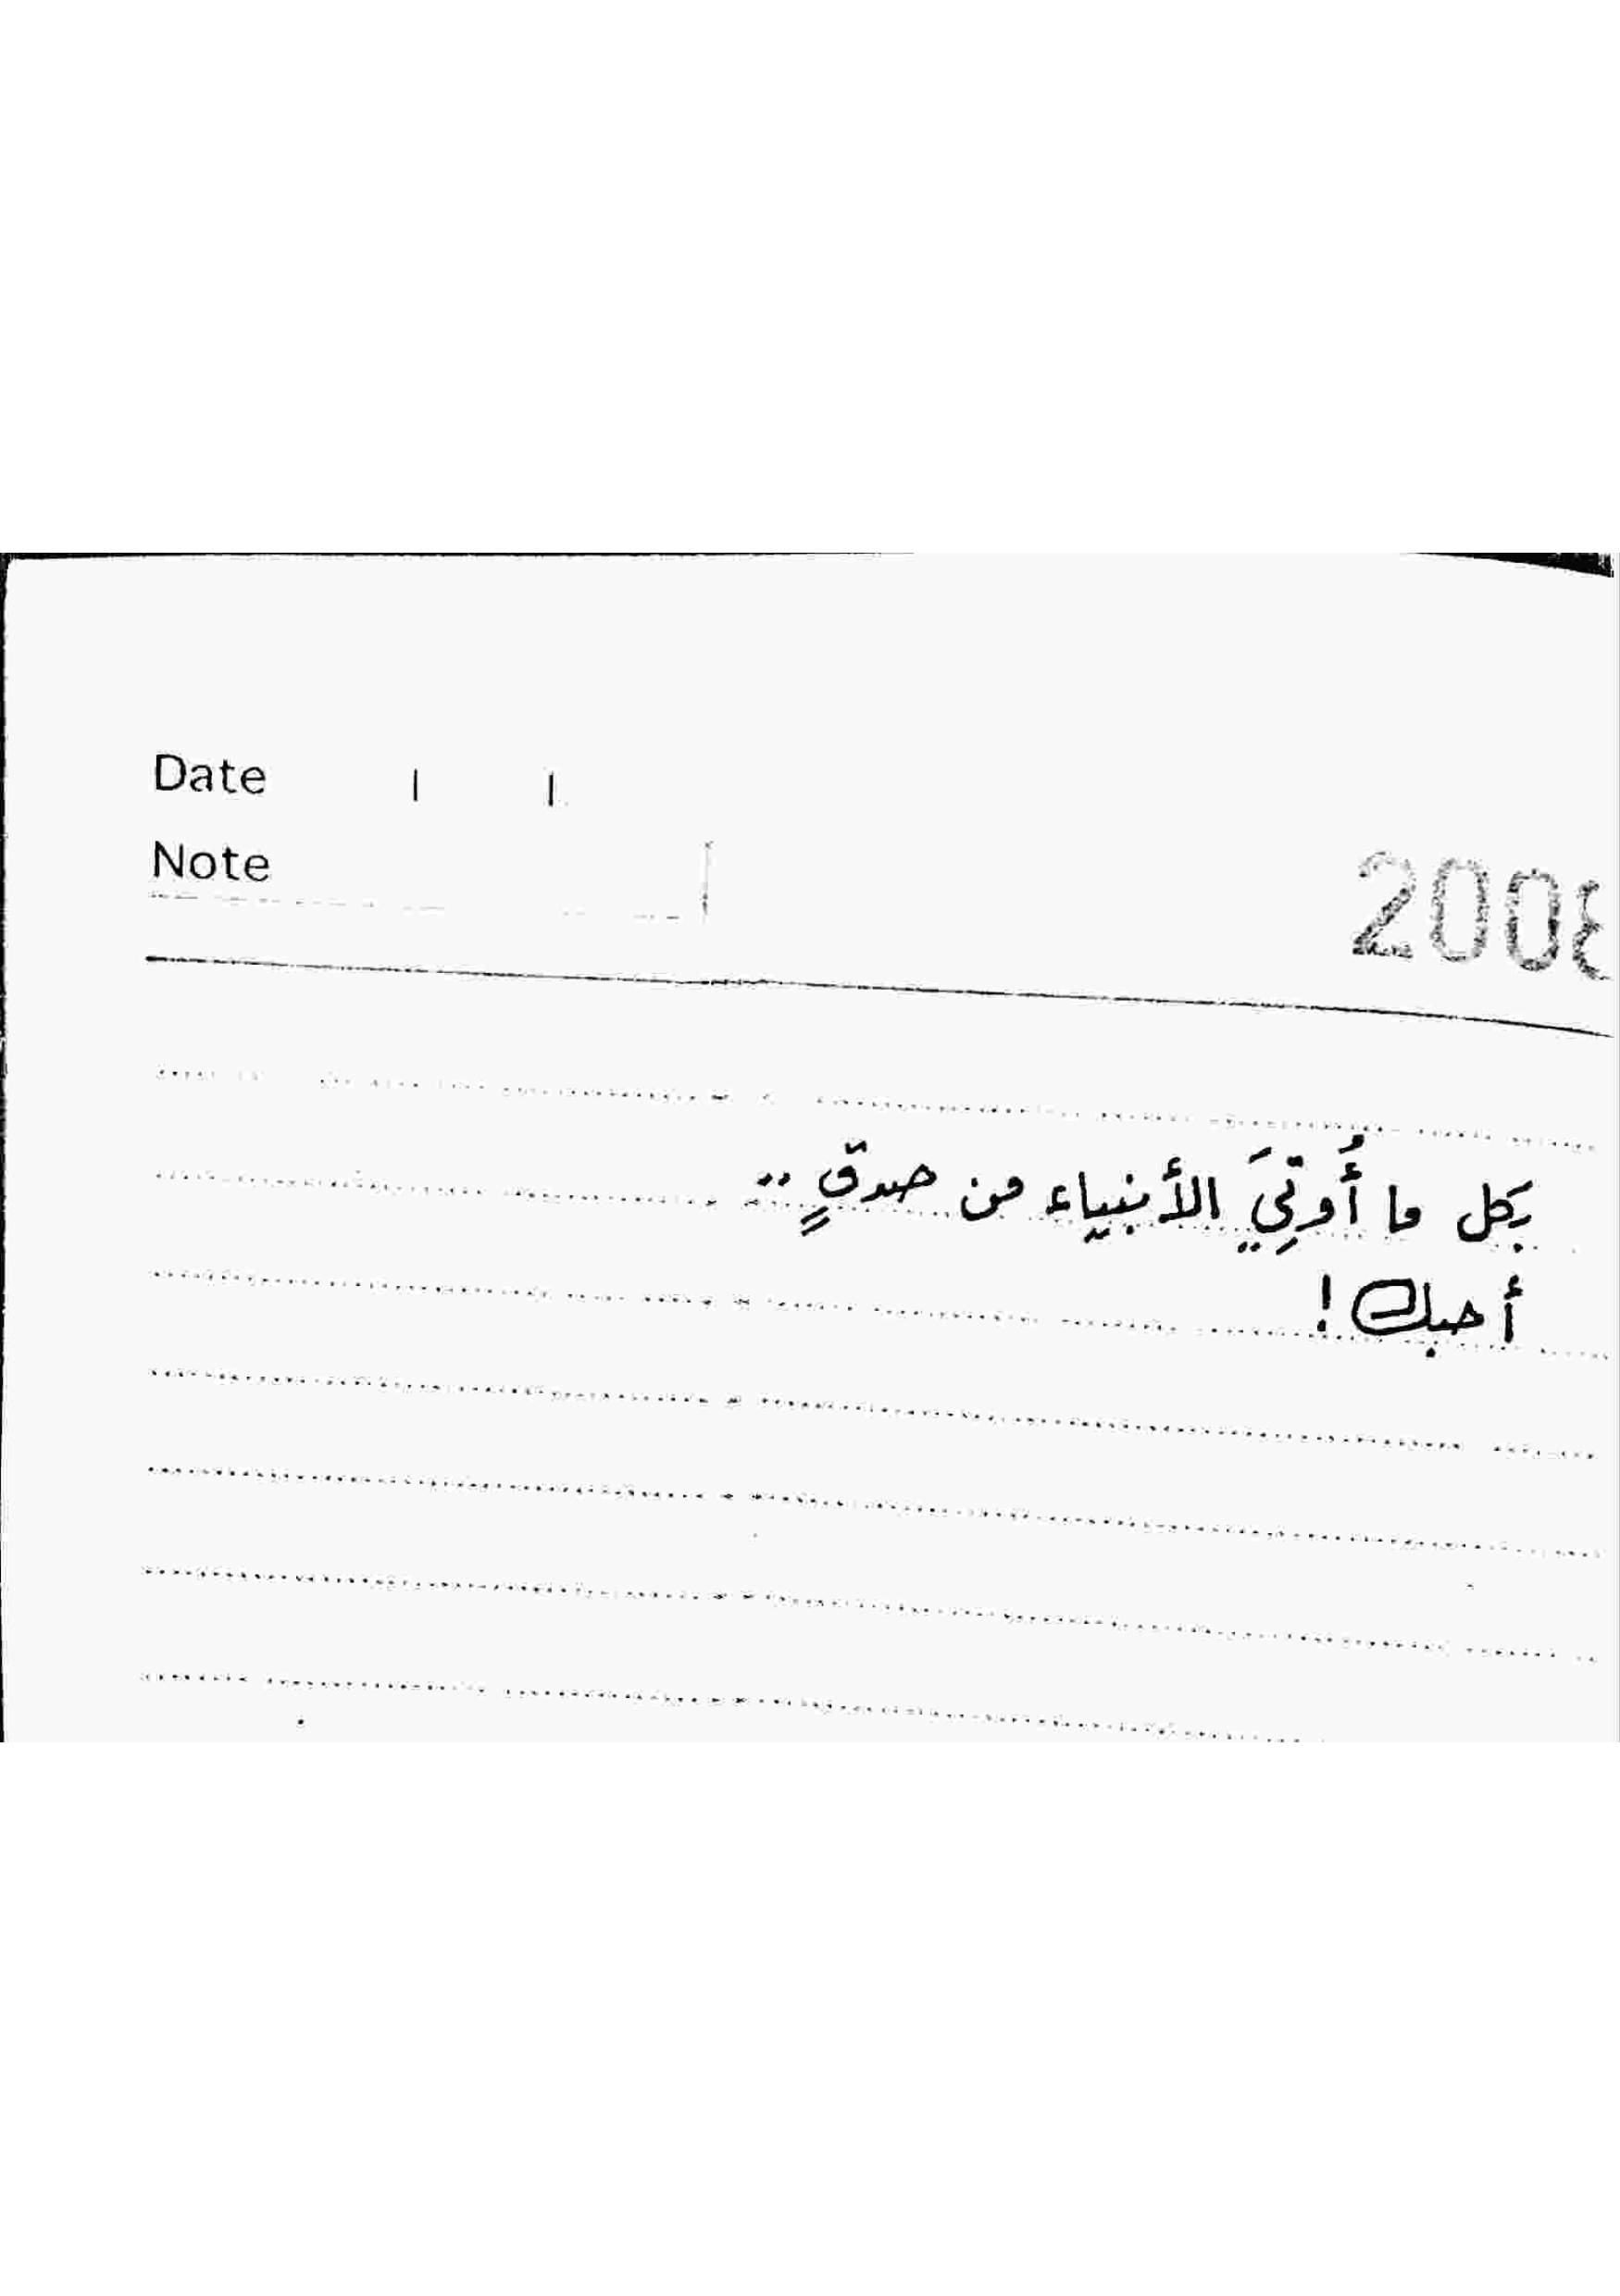 Date / /
Note
2008
بكل ما أُوتِيَ الأنبياء من صدقٍ ..
أحبك !